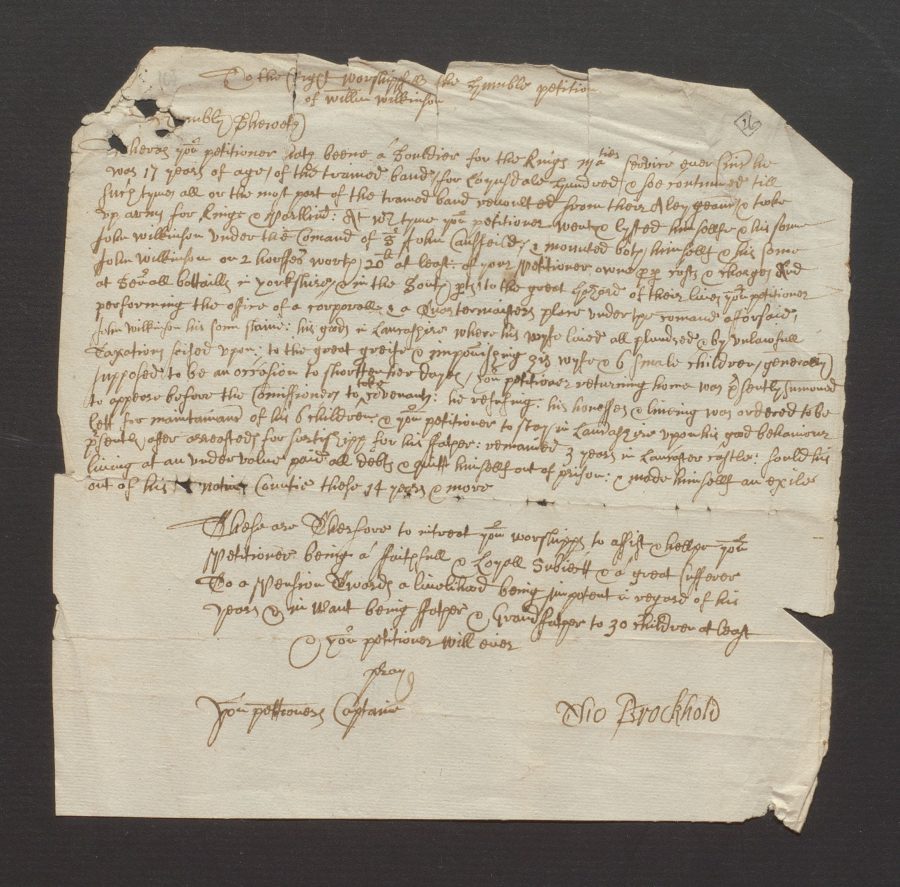 To the Right worshipfull the humble petition
of Willm Wilkinson
Humbly Sheweth
Whereas yor petitioner hath beene a Souldier for the Kings maties service ever since he
was 17 years of age, of the trained band for Loynsdale Hundred & soe continued till
such tyme all or the most part of the trained band revoulted from their Alegeance & tooke
up armes for Kinge & Parlimt: At wch tyme yor petitioner went & lysted himselfe & his sonne
John Wilkinson under the Comand of Sr John & mounted both himself & his sonne
John Wilkinson on 2 horsses worth 20li at least: of your Petitioner owne pp costs & charges And
at Sevrall battailes in Yorkshire & in the South pts to the great hazard of their lives yor petitioner
performing the office of a corporall & a Quartermasters place under the comand aforsaid,
John Wilkinson his sonn slaine: his goods in Lancashire where his wyfe lived all plundred & by unlawfull
Taxations seised upon: to the great greife & impovishing his wyfe & 6 smale children, generally
supposed to be an occasion to shorten her dayes, Yor petitioner returning home was psently sumoned
to appeare before the Comissioners to take Covenant: he refusing, his houses & liveing was ordered to be
sett for maintainance of his 6 children & yor petitioner to stay in Lancashire upon his good behaviour
psently after arreasted for suertishipp for his father: remained 3 years in Lancaster castle: sould his
living at an under value paid all debts & quitt himself out of prison: & made himself an exile
out of his native Countie these 14 years & more
These are Therfore to intreat yor worshipps to assist & helpe yor
Petitioner being a faithfull & Loyall Subiect & a great sufferer
To a Pension Towards a livelihood being impotent in regard of his
years & in want being father & Grand father to 30 children at least
& yor petitioner will ever
pray
Yor petitioners Captaine Tho Brockhold